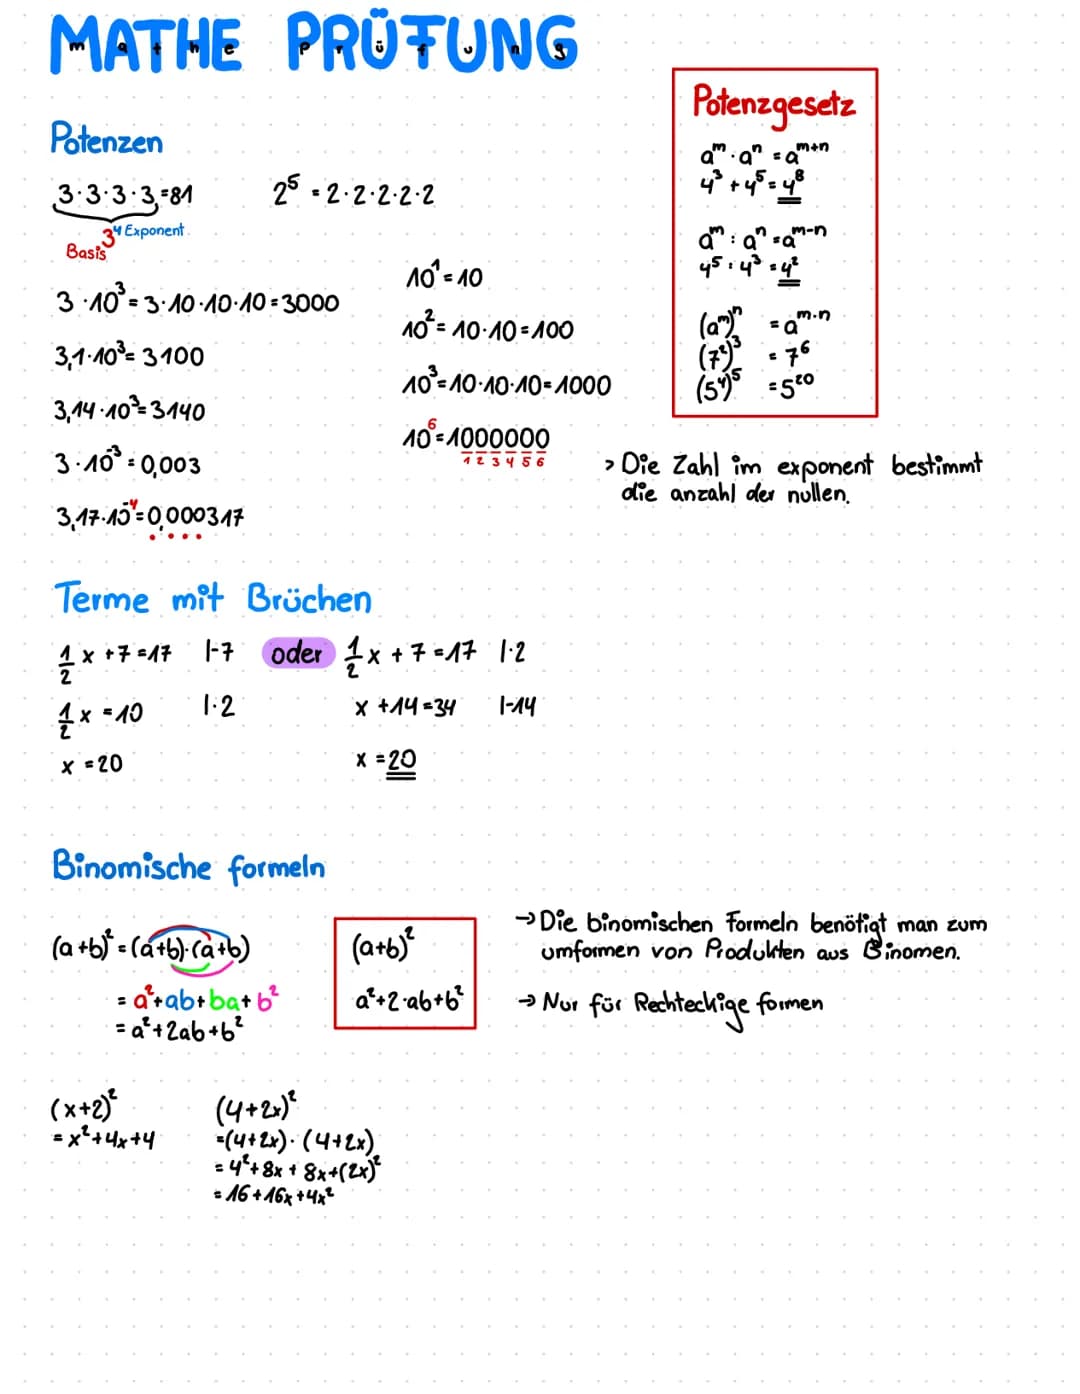 MATHE PRÜFUNG
mathe prüfung
Potenzen
3·3·3·3=81
3⁴ Exponent
Basis
2⁵ = 2·2·2·2·2
3·10³=3·10·10·10=3000
3,1·10³=3100
3,14·10³=3140
3·10⁻³=0,003
3,17·10⁻⁴=0,000317
10¹=10
10²=10·10=100
10³=10·10·10=1000
10⁶=1000000
1 2 3 4 5 6
Potenzgesetz
aᵐ·aⁿ=aᵐ⁺ⁿ
4³+4⁵=4⁸
aᵐ:aⁿ=aᵐ⁻ⁿ
4⁵:4³=4²
(aᵐ)ⁿ =aᵐ·ⁿ
(7²)³ =7⁶
(5⁴)⁵ =5²⁰
> Die Zahl im exponent bestimmt
die anzahl der nullen.
Terme mit Brüchen
1/2 x +7=17 |-7 oder 1/2 x +7=17 |·2
1/2 x =10 |·2 x +14=34 |-14
x =20 x =20
Binomische formeln
(a+b)²=(a+b)·(a+b)
=a²+ab+ba+b²
=a²+2ab+b²
(a+b)²
a²+2·ab+b²
→ Die binomischen Formeln benötigt man zum
umformen von Produkten aus Binomen.
→ Nur für Rechteckige formen
(x+2)²
=x²+4x+4
(4+2x)²
=(4+2x)·(4+2x)
=4²+8x+8x+(2x)²
=16+16x+4x²